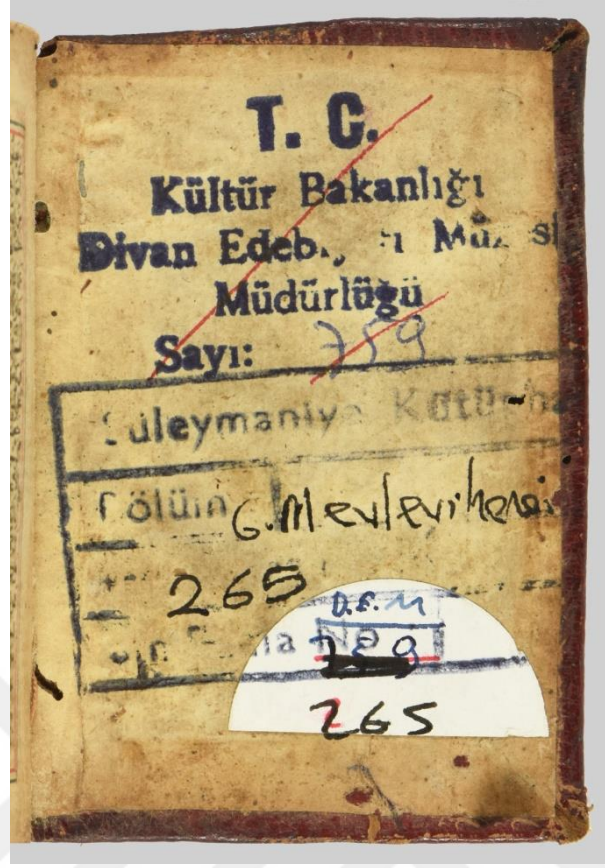 T. C.
Kültür Bakanlığı
Divan
Müdürlüğü
Sayı: 759
Süleymaniye
Bölüm G. Mevlevihanesi
265
D.E.M
759
265